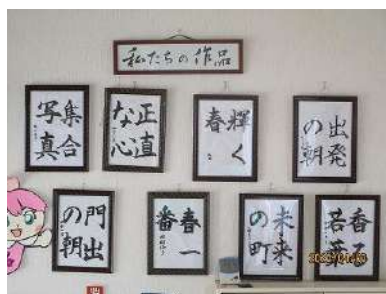 私たちの作品
集合
写真
正直
な心
輝く
春
出発
の朝
門出
の朝
春一
番
未来
の町
香る
若葉